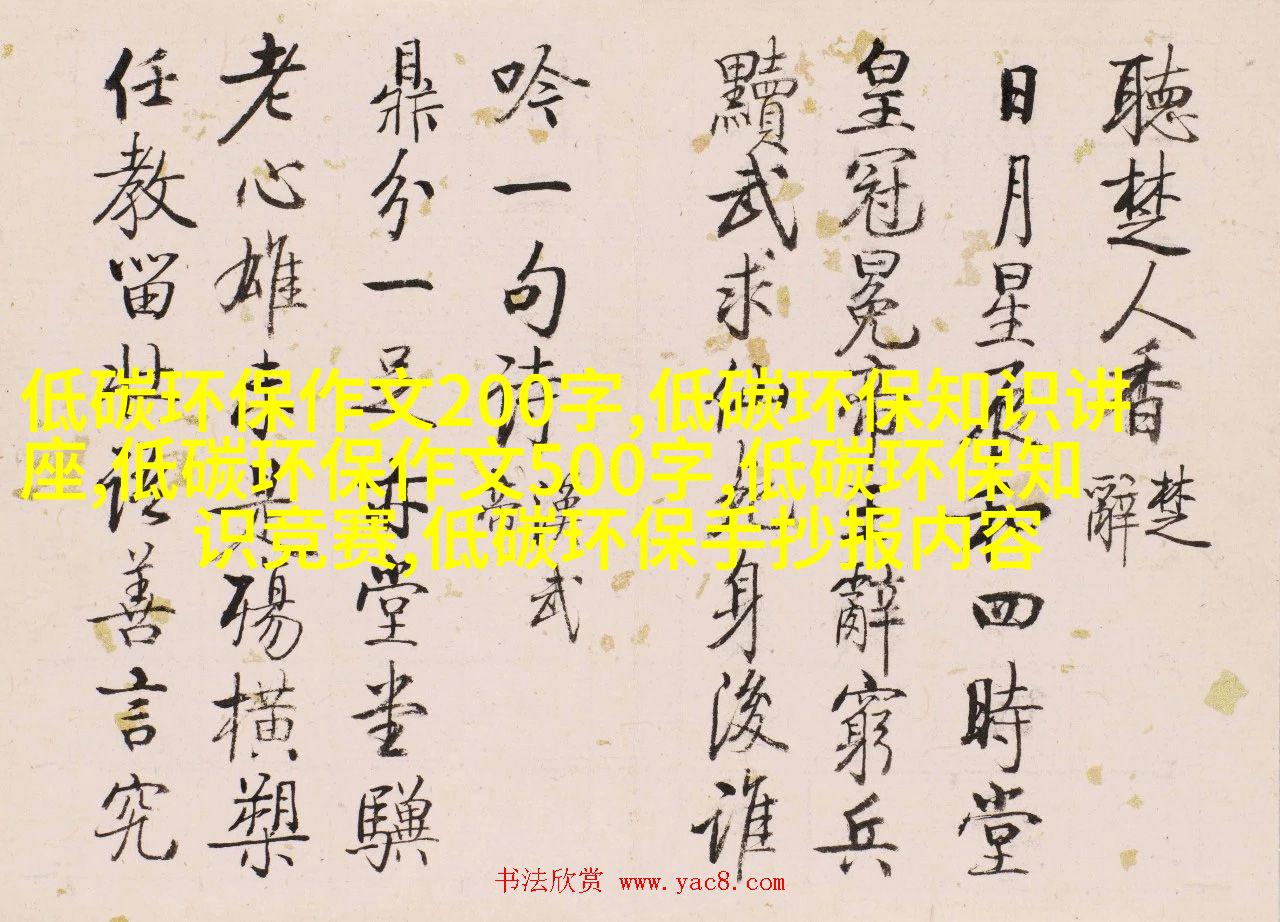 聽楚人香
楚辭
日月星辰和四時堂
皇冠冕帝王辭窮兵
黷武求仙身後誰
吟一句詩
漢武
帝
鼎分一足亦堂堂驥
老心雄未是殤橫槊
任教留語善言究
低碳环保作文200字,低碳环保知识讲
座,低碳环保作文500字,低碳环保知
识竞赛,低碳环保手抄报内容
书法欣赏 www.yac8.com